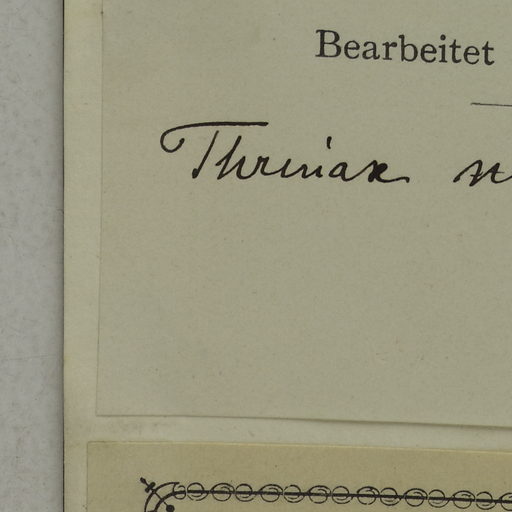 Bearbeitet
Thrinax